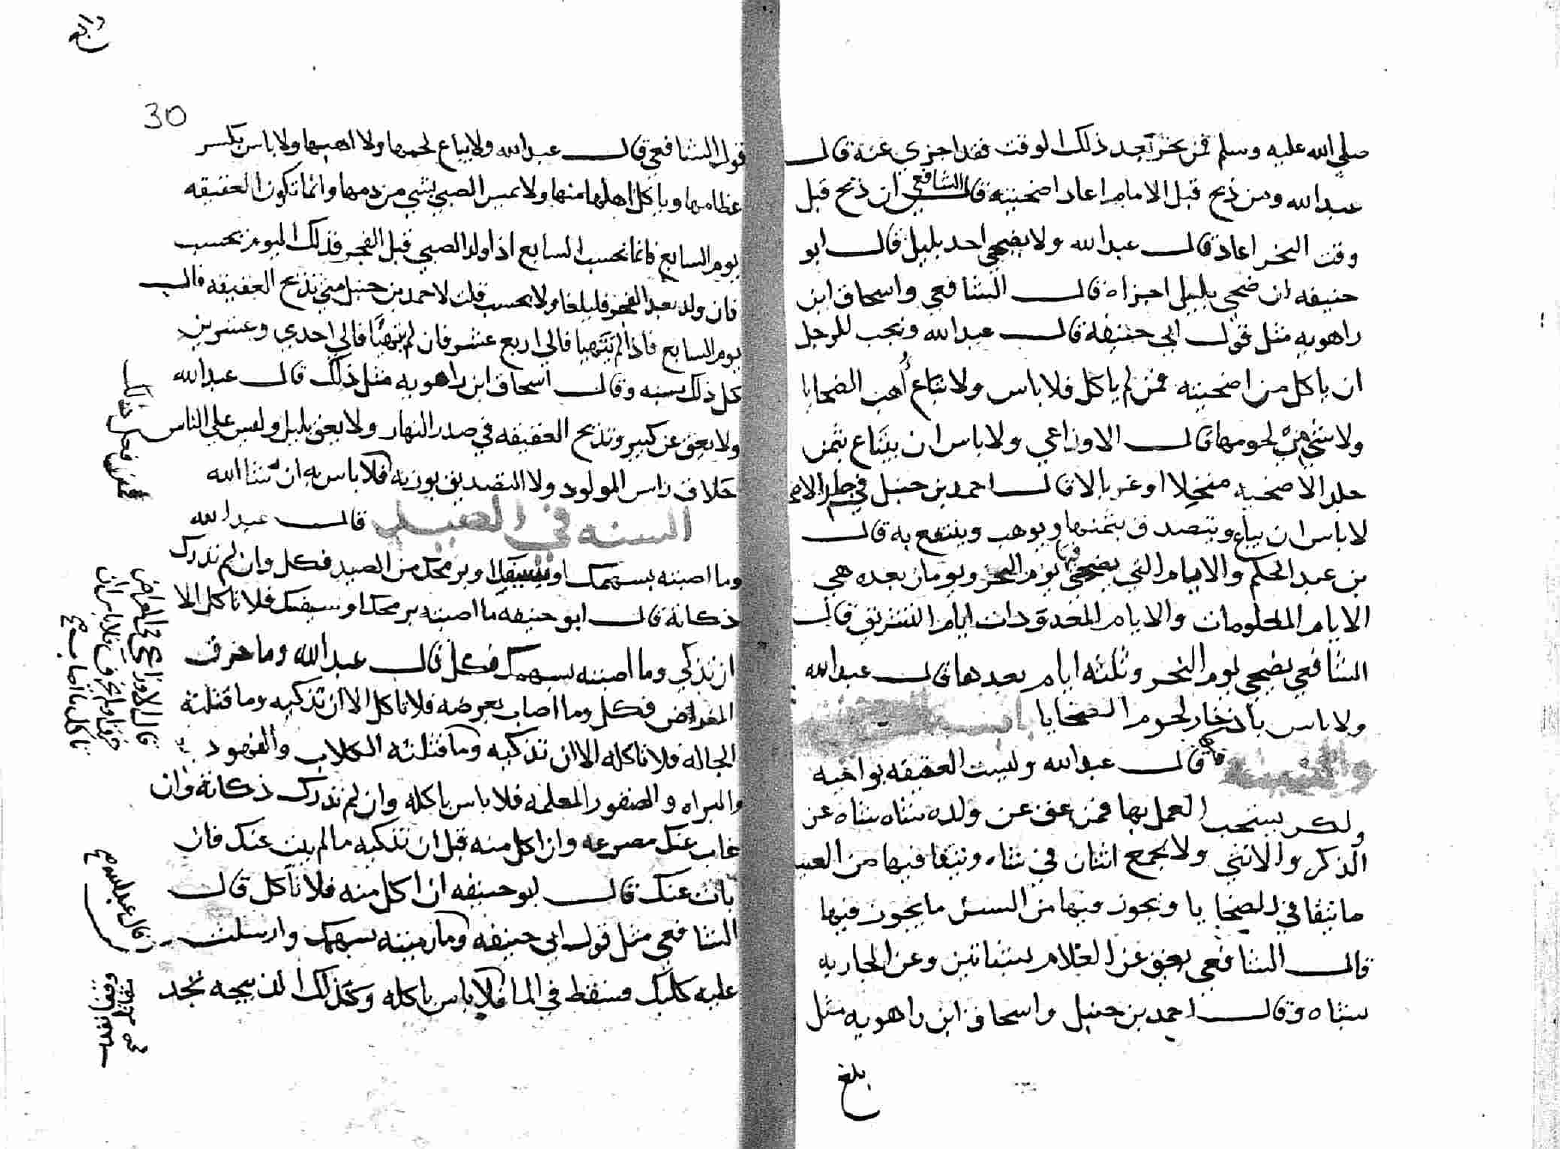 صلي الله عليه وسلم فمن نحر بعد ذلك الوقت فقد اجزي عنه قال
عبد الله ومن ذبح قبل الامام اعاد اضحيته قال الشافعي ان ذبح قبل
وقت النحر اعاد قال عبد الله ولا يضحي احد بليل قال ابو
حنيفه ان ضحي بليل اجزاه قال الشافعي واسحاق ابن
راهويه مثل قول ابي حنيفة قال عبد الله ونحب للرجل
ان ياكل من اضحيته فمن لم ياكل فلا باس ولا تباع أهب الضحايا
ولا شي من لحومها قال الاوزاعي ولا باس ان يبتاع بثمن
جلد الاضحيه منخلا او غربالا قال احمد بن حنبل في جلد الاضحيه
لا باس ان يباع ويتصدق بثمنها ويوهب وينتفع به قال
بن عبد الحكم والايام التي يضحي فيها يوم النحر ويومان بعده هي
الايام المعلومات والايام المعدودات ايام التشريق قال
الشافعي يضحي يوم النحر وثلثه ايام بعدها قال عبد الله
ولا باس بادخار لحوم الضحايا
قال عبد الله وليست العقيقه بواجبه
ولكن يستحب العمل بها فمن عق عن ولده شاه شاه عن
الذكر والانثي ولا يجمع اثنان في شاه ويتقا فيها من العيب
ما يتقا في الضحايا ويجوز فيها من السن ما يجوز فيها
قال الشافعي يعق عن الغلام بشاتين وعن الجاريه
شاه وقال احمد بن حنبل واسحاق ابن راهويه مثل
بلغ
30
قول الشافعي قال عبد الله ولا يباع لحمها ولا اهبها ولا باس بكسر
عظامها وياكل اهلها منها ولا يمس الصبي بشي من دمها وانما تكون العقيقه
يوم السابع فانما نحسب السابع اذا ولد الصبي قبل الفجر فذلك اليوم يحسب
فان ولد بعد الفجر فليلغا ولا يحسب قلت لاحمد بن حنبل متي تذبح العقيقه قال
يوم السابع فاذا لم يتهيا فالي اربع عشر فان لم يتهيا فالي احدي وعشرين
كل ذلك سنه وقال اسحاق ابن راهويه مثل ذلك قال عبد الله
ولا يعق عن كبير وتذبح العقيقه في صدر النهار ولا يعق بليل وليس علي الناس
حلاق راس المولود ولا التصدق بوزنه فلا باس به ان شا الله
السنه في الصيد قال عبد الله
وما اصبته بسهمك او بسيفك او برمحك من الصيد فكل وان لم تدرك
ذكاته قال ابو حنيفه ما اصبته برمحك او سيفك فلا تاكل الا
ان تذكي وما اصبته بسهمك فكل قال عبد الله وما خرق
المعراض فكل وما اصاب بعرضه فلا تاكل الا ان تذكيه وما قتلته
الحباله فلا تاكله الا ان تذكيه وما قتلته الكلاب والفهود
والبزاه والصقور المعلمه فلا باس باكله وان لم تدرك ذكاته وان
غاب عنك مصرعه وان اكل منه قبل ان تذكيه ما لم يبت عنك فان
بات عنك قال ابو حنيفه ان اكل منه فلا تاكل قال
الشافعي مثل قول ابي حنيفه وما رميته بسهمك وارسلت
عليه كلبك فسقط في الما فلا باس باكله وكذلك الذبيحه تجد
قال الاوزاعي